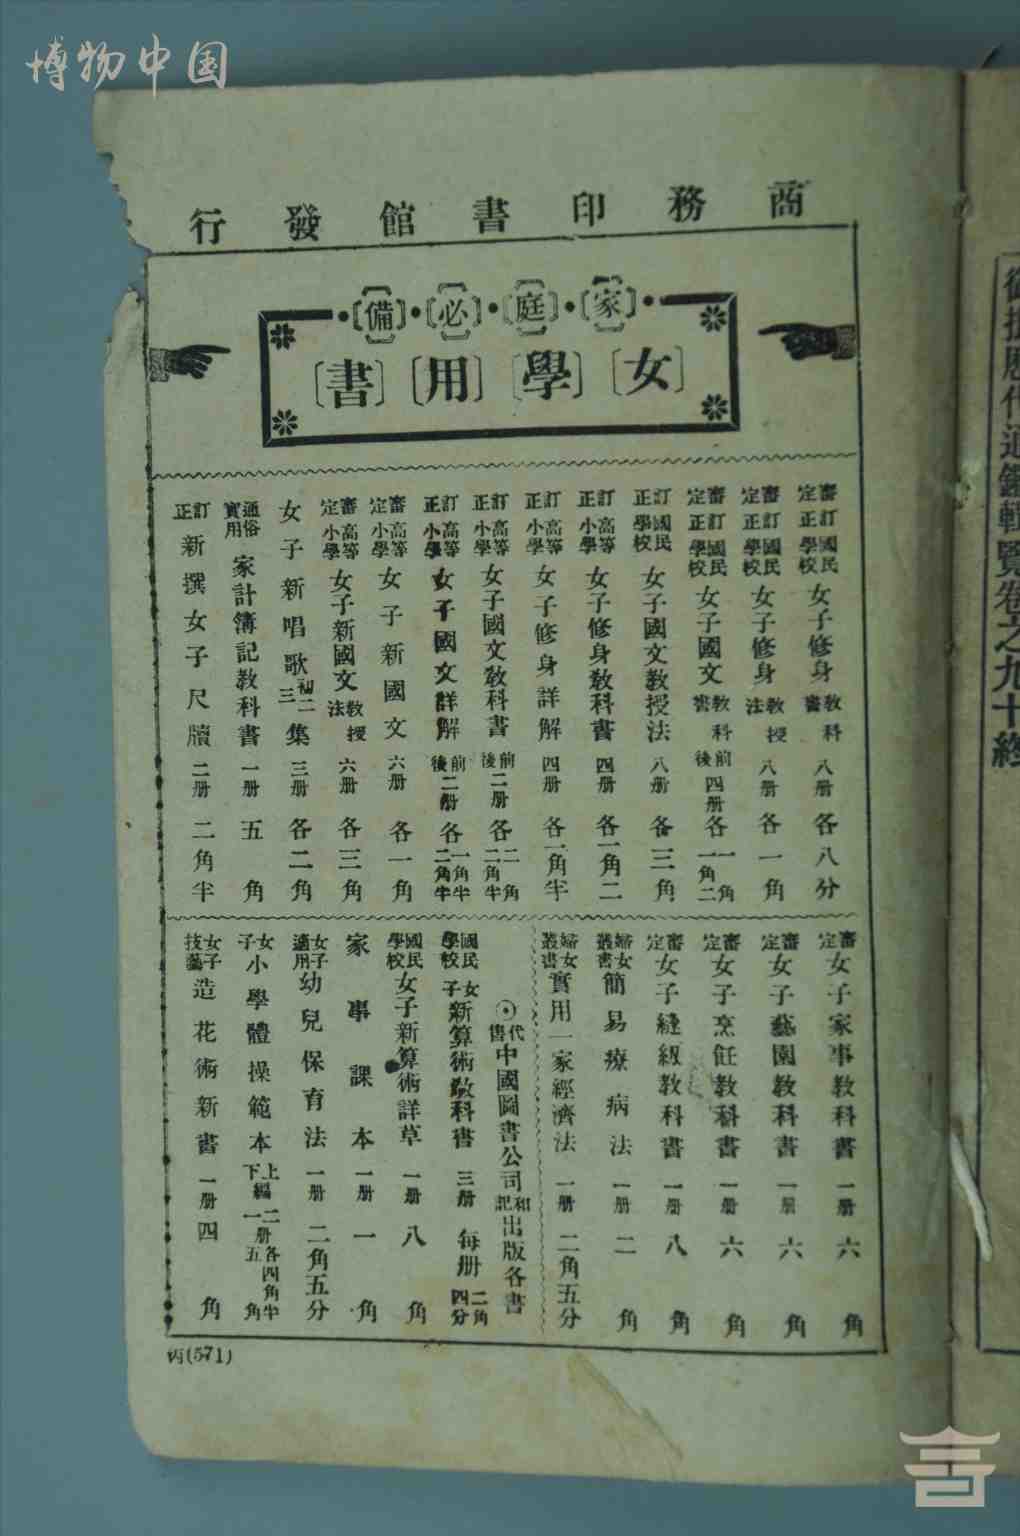 博物中国
商務印書館發行
家庭必備
女學用書
審定訂正國民學校女子修身教科書八册各八分
審定訂正國民學校女子修身教授法八册各一角
審定訂正國民學校女子國文教科書前後四册各一角一角二
訂正國民學校女子國文教授法八册各三角
訂正高等小學女子修身教科書四册各一角二
訂正高等小學女子修身詳解四册各一角半
訂正高等小學女子國文教科書前後二册各二角二角半
訂正高等小學女子國文詳解前後二册各一角半二角半
審定高等小學女子新國文六册各一角
審定高等小學女子新國文教授法六册各三角
女子新唱歌初二三集三册各二角
通俗實用家計簿記教科書一册五角
訂正新撰女子尺牘二册二角半
審定女子家事教科書一册六角
審定女子藝園教科書一册六角
審定女子烹飪教科書一册六角
審定女子縫級教科書一册八角
婦女叢書簡易療病法一册二角
婦女叢書實用一家經濟法一册二角五分
⊙代售中國圖書公司和記出版各書
國民學校女子新算術教科書三册每册二角四分
國民學校女子新算術詳草一册八角
家事課本一册一角
女子適用幼兒保育法一册二角五分
女子小學體操範本上下編二册一各四角半五角
女子技藝造花術新書一册四角
丙(571)
御批歷代通鑑輯覽卷之九十終